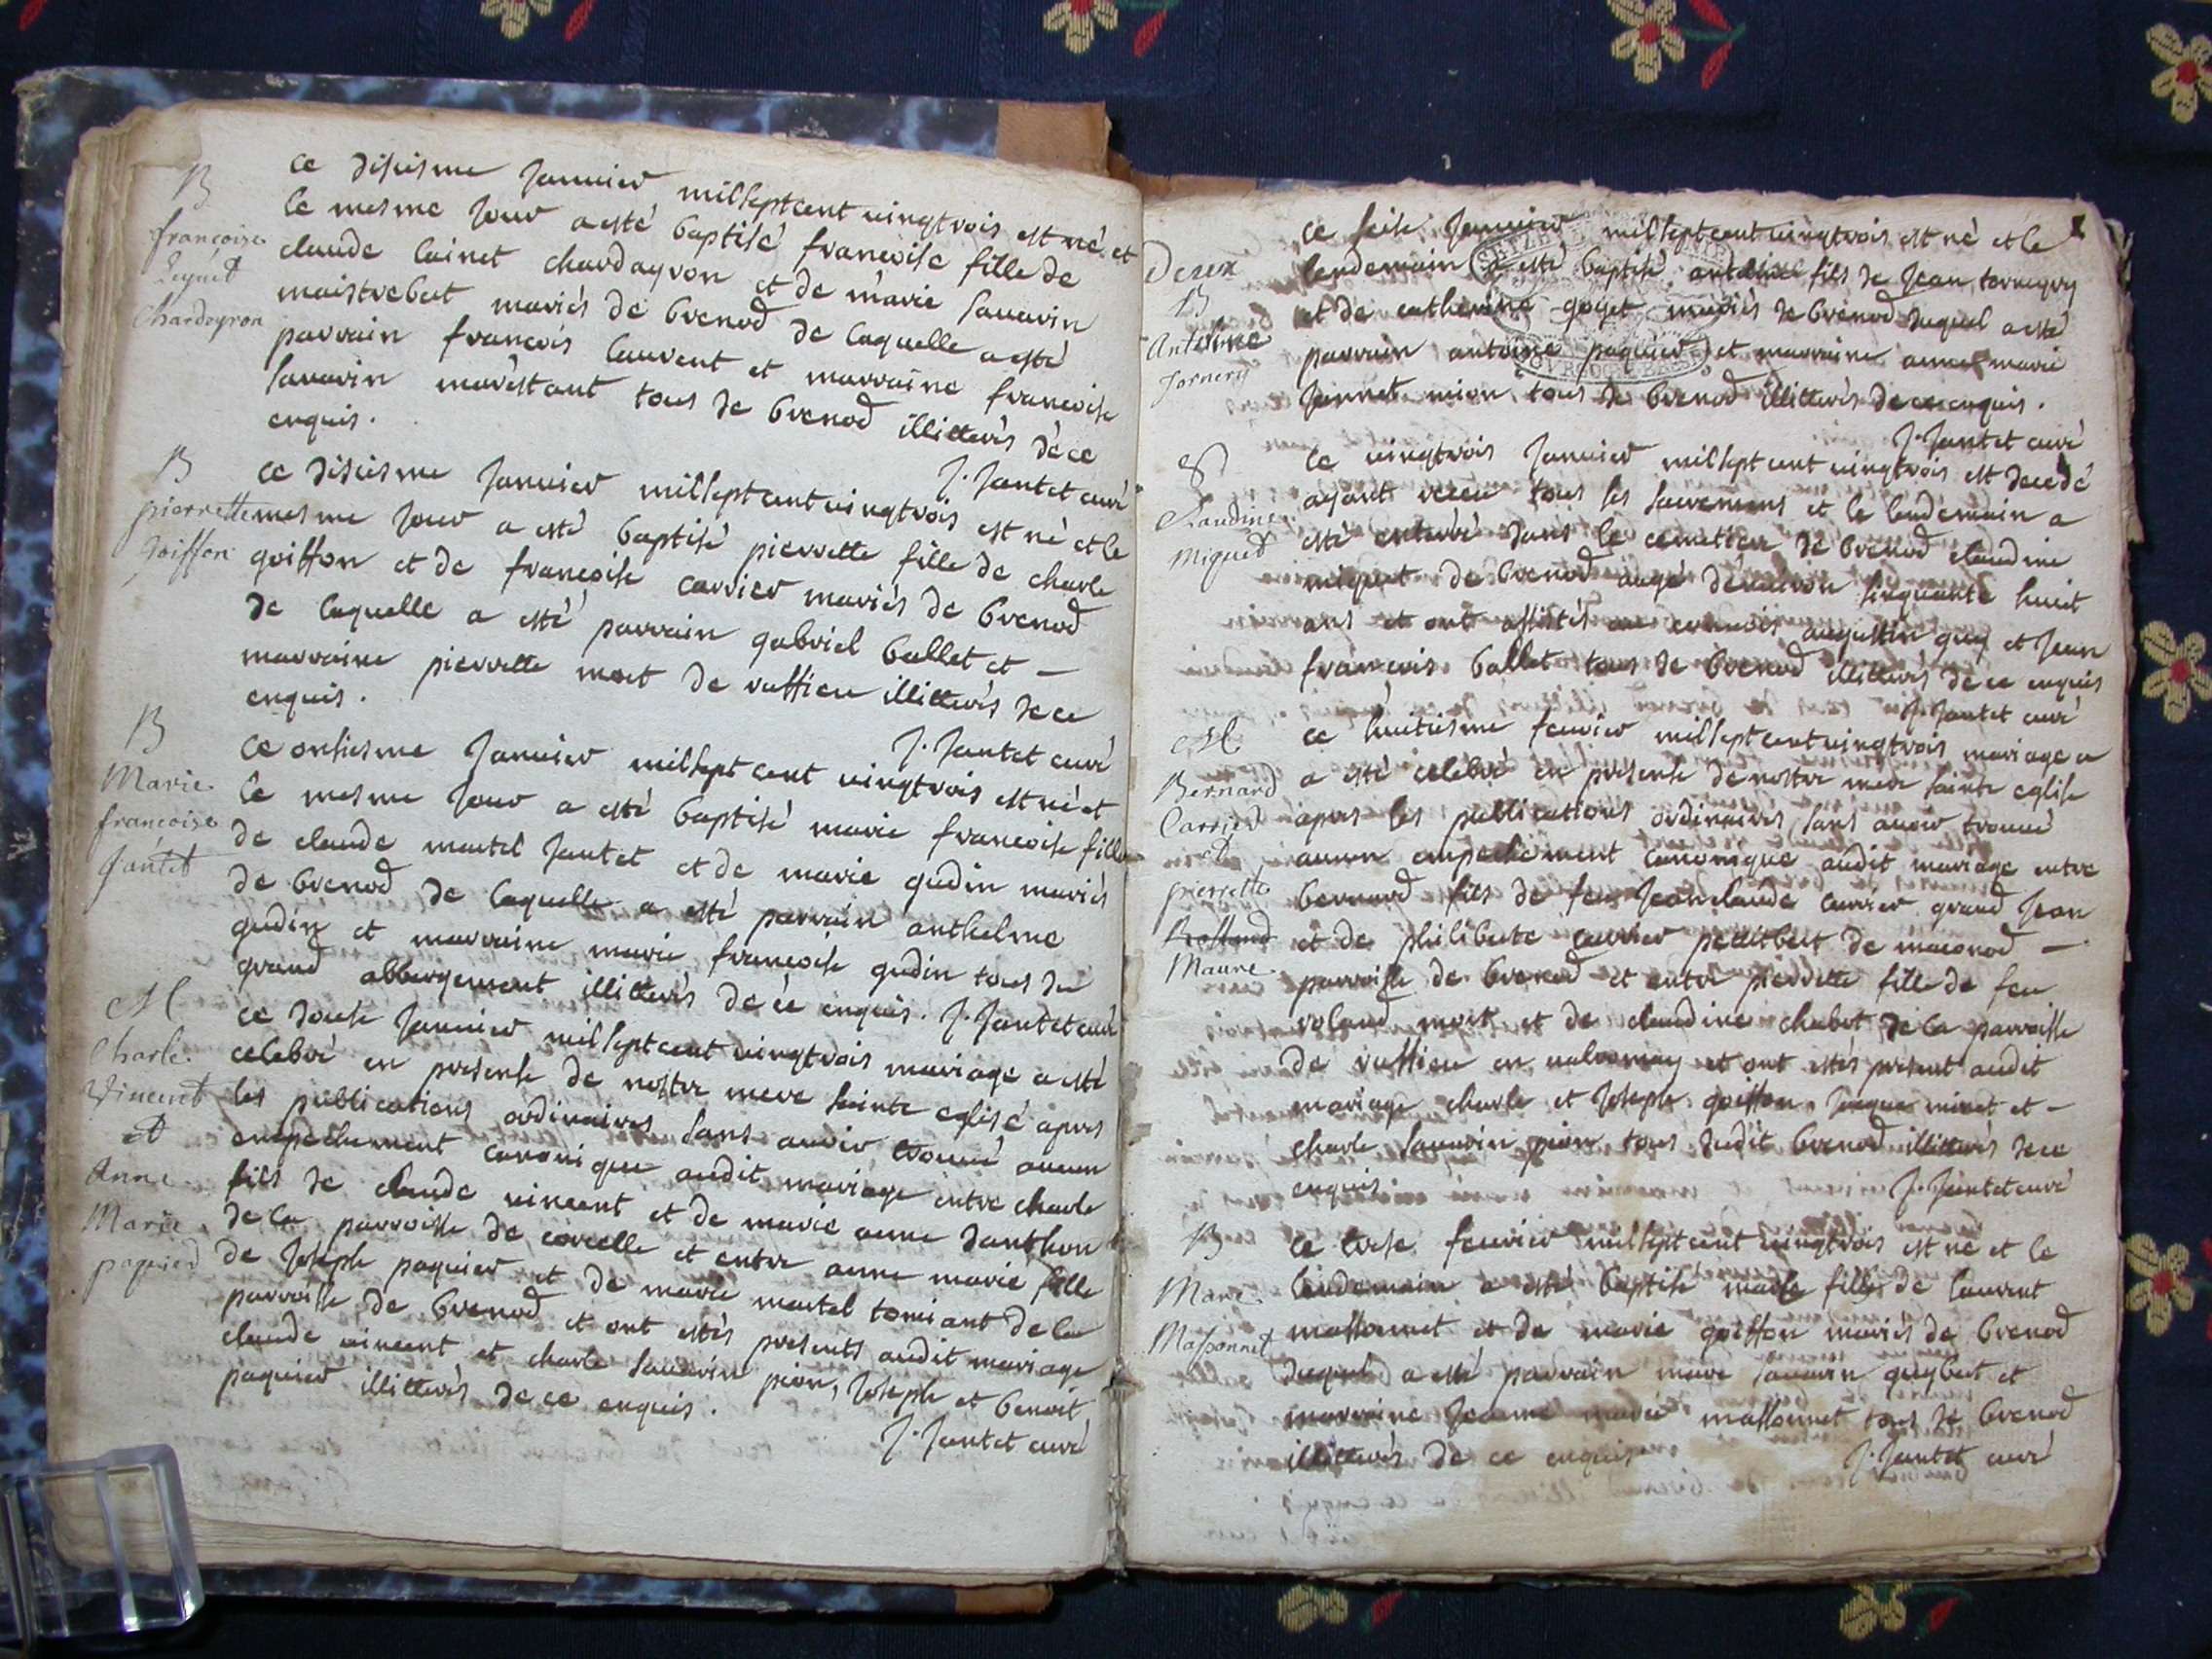 B
francoise
Chardoyron
ce disiesme Januier milseptcent uingtrois est né et
le mesme Jour a esté baptisé francoise fille de
claude cuinet chardayron et de marie sauarin
maistrebut mariés de brenod de laquelle a esté
parrain francois laurent et marraine francoise
sauarin marestant tous de brenod illitterés de ce
enquis.
J. Jantet curé
B
pierrette
goiffon
ce disiesme Januier milseptcent uingtrois est né et le
mesme Jour a esté baptisé pierrette fille de charle
goiffon et de francoise carrier mariés de brenod
de laquelle a esté parrain gabriel ballet et
marraine pierrette mort de ruffieu illitterés de ce
enquis.
J. Jantet curé
B
Marie
francoise
Jantet
ce onsiesme Januier milsept cent uingtrois est né et
le mesme Jour a esté baptisé marie francoise fille
de claude martel Jantet et de marie gudin mariés
de brenod de laquelle a esté parrain anthelme
gudin et marraine marie francoise gudin tous du
grand abbergement illitterés de ce enquis. J. Jantet curé
M
Charle
Vincent
et
Anne
Marie
paquier
ce douse Januier milseptcent uingtrois mariage a esté
celebré en presense de nostre mere sainte eglise apres
les publications ordinaires sans auoir trouué aucun
empechement canonique audit mariage entre charle
fils de claude uincent et de marie anne danthon
de la parroisse de corcelle et entre anne marie fille
de Joseph paquier et de marie martel tomiant de la
parroisse de brenod et ont estés presents audit mariage
claude uincent et charle sauarin pion, Joseph et benoit
paquier illitterés de ce enquis.
J. Jantet curé
Deux
B
Antoine
Jornery
ce seise Januier milseptcent uingtrois est né et le
lendemain a esté baptisé antoine fils de Jean
et de catherine goyet mariés de brenod duquel a esté
parrain antoine paquier et marraine anne marie
Jannet mion tous de brenod illitterés de ce enquis.
J. Jantet curé
S
Claudine
Miguet
ce uingtrois Januier milseptcent uingtrois est decedé
ayant receu tous les sacremens et le lendemain a
esté enterré dans le cemetier de brenod claudine
miguet de brenod augé denuiron sinquante huict
ans et ont assistés au conuois augustin guy et Jean
francois ballet tous de brenod illitterés de ce enquis
J. Jantet curé
M
Bernard
Carrier
et
pierrette
Maure
ce huitiesme feurier milseptcent uingtrois mariage a
a esté celebré en presense de nostre mere sainte eglise
apres les publications ordinaires sans auoir trouué
aucun empechement canonique audit mariage entre
bernard fils de feu Jean claude carrier grand Jean
et de philiberte carrier petitbert de maconod
parroisse de brenod et entre pierrette fille de feu
roland mort et de claudine chabot de la parroisse
de ruffieu en ualromay et ont estés present audit
mariage charle et Joseph goiffon Jacque minet et
charle sauarin pion tous dudit brenod illitterés de ce
enquis J. Jantet curé
B
Marc
Massonnet
ce trese feurier milseptcent uingtrois est né et le
lendemain a esté baptisé marc fils de laurent
massonnet et de marie goiffon mariés de brenod
duquel a esté parrain marc sauarin guybert et
marraine Jeanne marie massonnet tous de brenod
illitterés de ce enquis J. Jantet curé